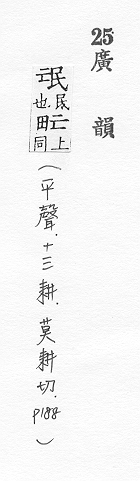 25 廣韻
氓民也甿上同
（平聲.十三耕.莫耕切.p188）